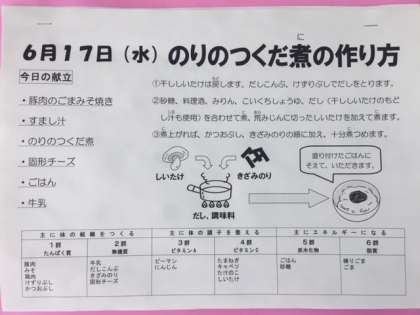 ６月１７日（水）のりのつくだ煮の作り方
に
今日の献立
・豚肉のごまみそ焼き
・すまし汁
・のりのつくだ煮
・固形チーズ
・ごはん
・牛乳
①干ししいたけは戻します。だしこんぶ、けずりぶしでだしをとります。
②砂糖、料理酒、みりん、こいくちしょうゆ、だし（干ししいたけのもどし汁も使用）を合わせて煮、荒みじんに切ったしいたけを加えて煮ます。
③煮上がれば、かつおぶし、きざみのりの順に加え、十分煮つめます。
しいたけ
きざみのり
だし、調味料
盛り付けたごはんに
そえて、いただきます。
主に体の組織をつくる
主に体の調子を整える
主にエネルギーになる
１群
たんぱく質
２群
無機質
３群
ビタミンＡ
４群
ビタミンＣ
５群
炭水化物
６群
脂質
豚肉
みそ
鶏肉
けずりぶし
かつおぶし
牛乳
だしこんぶ
きざみのり
固形チーズ
ピーマン
にんじん
たまねぎ
キャベツ
たけのこ
しいたけ
ごはん
砂糖
練りごま
ごま